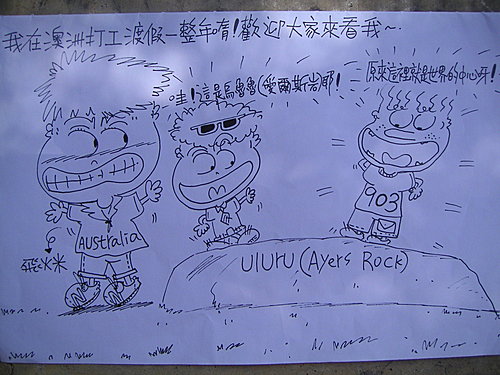 我在澳洲打工渡假一整年唷!歡迎大家來看我~
哇!這是烏魯魯(愛爾斯岩)耶!
原來這裡就是世界的中心呀!
903
AUSTRALIA
飛炎米
ULURU (AYERS ROCK)